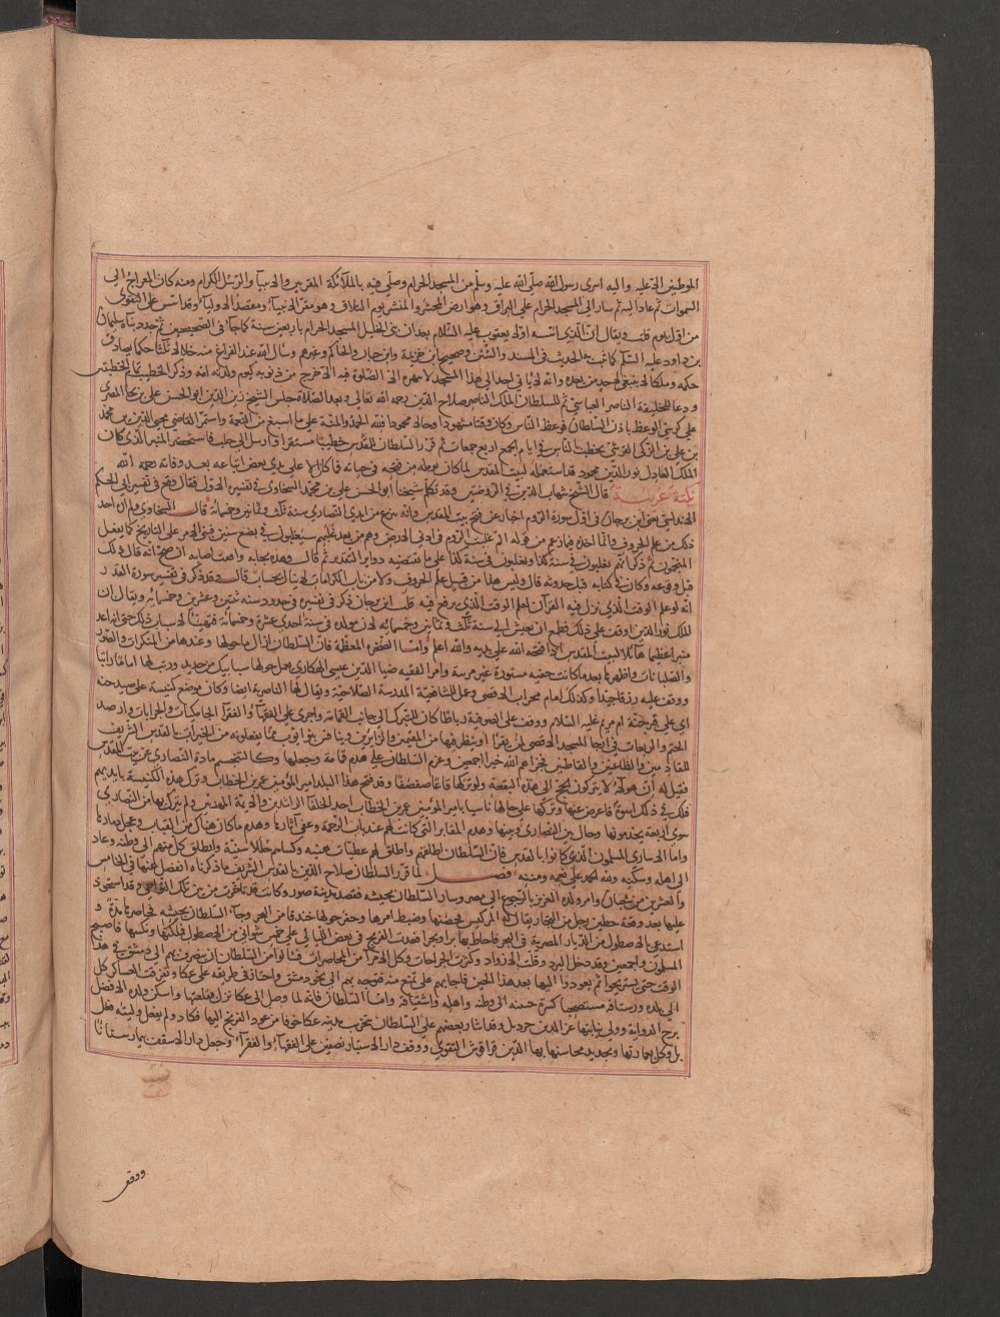 المواطين الخ عليه واليه اسرى رسول الله صلى الله عليه وسلم من المسجد الحرام وصلى فيه بالملائكة المقربين والانبيآء والرسل الكرام ومنه كان المعراج الى
السموات ثم عاد اليه ثم سار الى المسجد الحرام على البراق وهو ارض المحشر والمنشر يوم التلاق وهو مقر الانبيآء ومقصد الاوليآء وقد اسس على التقوى
من اول يوم قلت ويقال ان الذى اسسه اولا يعقوب عليه السلام بعد ان بنى الخليل المسجد الحرام باربعين سنة كما جآء فى الصحيحين ثم جدد بنآه سليمان
بن داود عليه السلام كما ثبت به الحديث فى المسند والسنن وصحيح ابن خزيمة وابن حبان والحاكم وغيرهم وسال الله عند الفراغ منه خلالا ثلاثا حكما يصادف
حكمه وملكا لا ينبغى لاحد من بعده وانه لا ياتى احد الى هذا المسجد لا ينهزه الا الصلوة فيه الا خرج من ذنوبه كيوم ولدته امه وذكر الخطيب تمام الخطبتين
ودعا للخليفة الناصر العباسى ثم للسلطان الملك الناصر صلاح الدين رحمه الله تعالى وبعد الصلاة جلس الشيخ زين الدين ابو الحسن على بن نجا المصرى
على كرسى الوعظ باذن السلطان فوعظ الناس وكان وقتا مشهودا وحالا محمودا فلله الحمد والمنة على ما اسبغ من النعمة واستمر القاضى محيى الدين بن محمد
بن على بن الزكى القرشى يخطب بالناس فى ايام الجمع اربع جمعات ثم قرر السلطان للقدس خطيبا مستقرا وارسل الى حلب فاستحضر المنبر الذى كان
الملك العادل نور الدين محمود قد استعمله لبيت المقدس لما كان يؤمله من فتحه فى حياته فما كان الا على يدى بعض اتباعه بعد وفاته رحمه الله
نكتة غريبة قال الشيخ شهاب الدين فى الروضتين وقد تكلم شيخنا ابو الحسن على بن محمد السخاوى فى تفسيره الاول فقال وقع فى تفسير ابى الحكم
الاندلسى يعنى ابن برجان فى اول سورة الروم اخبار عن فتح بيت المقدس وانه ينزع من ايدى النصارى سنة ثلث وثمانين وخمسمائة قال السخاوى ولم ار اخذ
ذلك من علم الحروف وانما اخذه فيما زعم من قوله الم غلبت الروم فى ادنى الارض وهم من بعد غلبهم سيغلبون فى بضع سنين فبنى الامر على التاريخ كما يفعل
المنجمون ثم ذكر انهم يغلبون فى سنة كذا ويغلبون فى سنة كذا على ما تقتضيه دوائر التقدير ثم قال وهذه نجابة وافقت اصابة ان صح انه قال ذلك
قبل وقوعه وكان فى كتابه قبل حدوثه قال وليس هذا من قبيل علم الحروف ولا من باب الكرامات لانها لا تنال بحساب قال وقد ذكر فى تفسير سورة القدر
انه لو علم الوقت الذى نزل فيه القرآن لعلم الوقت الذى يرفع فيه قلت ابن برجان ذكر فى تفسيره فى حدود سنة ثنتين وعشرين وخمسمائة ويقال ان
الملك نور الدين اوقف على ذلك فطمع ان يعيش الى سنة ثلث وثمانين وخمسمائة لان مولده فى سنة احدى عشرة وخمسمائة فتهيأ لاسباب ذلك حتى انه اعد
منبرا عظيما هائلا لبيت المقدس اذا فتحه الله على يديه والله اعلم واما الصخرة المعظمة فان السلطان ازال ما حولها وعندها من المنكرات والصور
والصلبانات واظهرها بعد ما كانت خفية مستورة غير مرئية وامر الفقيه ضيا الدين عيسى الهكارى يعمل حولها شبابيك من حديد ورتب لها اماما راتبا
ووقف عليه رزقا جيدا وكذلك امام محراب الاقصى وعمل للشافعية المدرسة الصلاحية ويقال لها الناصرية ايضا وكان موضع كنيسة على صند حنه
اى على قبر حنة ام مريم عليه السلام ووقف على الصوفية رباطا كان للبترك الى جانب القمامة واجرى على الفقهآ والفقرآ الجامكيات والجرايات وارصد
الختم والربعات فى ارجا المسجد الاقصى لمن يقرا او ينظر فيها من المقيمين والزائرين وتنافس بنو ايوب فيما يفعلونه من الخيرات بالقدس الشريف
للقادمين والظاعنين والقاطنين فجزاهم الله خيرا اجمعين وعزم السلطان على هدم قمامة ويجعلها دكا لتنحسم مادة النصارى عن بيت المقدس
فقيل له ان هولاء لا يتركون الحج الى هذه البقعة ولو تركتها قاعا صفصفا وقد فتح هذا البلد امير المؤمنين عمر بن الخطاب وترك هذه الكنيسة بايديهم
فلك فى ذلك اسوة فاعرض عنها وتركها على حالها تاسيا بامير المؤمنين عمر بن الخطاب احد الخلفآ الراشدين والائمة المهديين ولم يترك بها من النصارى
سوى اربعة يخدمونها وحال بين النصارى وبينها وهدم المقابر التى كانت لهم عند باب الرحمة وعفى اثارها وهدم ما كان هناك من القباب وعجل دمارها
واما الاسارى المسلمون الذين كانوا بالقدس فان السلطان اطلقهم واطلق لهم عطيات هنية وكساهم حللا سنية وانطلق كل منهم الى وطنه وعاد
الى اهله وسكنه ولله الحمد على نعمه ومننه فصل لما قرر السلطان صلاح الدين بالقدس الشريف ما ذكرناه انفصل عنها فى الخامس
والعشرين من شعبان وامر ولده العزيز بالرجوع الى مصر وسار السلطان بجيشه فقصد مدينة صور وكانت قد تاخرت من بين تلك النواحى وقد استحوذ
عليها بعد وقعة حطين رجل من التجار يقال له المركيس فحصنها وضبط امرها وحفر حولها خندقا من البحر وجآء السلطان بجيشه فحاصرها مدة و
استدعى بالاصطول من الديار المصرية فى البحر فاحاط بها برا وبحرا فعدت الفرنج فى بعض الليالى على خمس شوانى من الاصطول فملكتها ونكستها فاصبح
المسلمون واجمين وقد دخل البرد وقلت الازواد وكثرت الجراحات وكل الامرآ من المحاصرات فسالوا من السلطان ان ينصرف بهم الى دمشق فى هذا
الوقت حتى يستريحوا ثم يعود اليها بعد هذا الحين فاجابهم على تمنع منه فتوجه بهم الى نحو دمشق واجتاز فى طريقه على عكا وتفرقت العساكر كل
الى بلده ورستاقه مستصحبا كثرة حسنه الى وطنه واهله واشتياقه واما السلطان فانه لما وصل الى عكا نزل بقلعتها واسكن ولده الافضل
برج الداوية وولى نيابتها عز الدين جرديك وقد اشار بعضهم على السلطان بتخريب مدينة عكا خوفا من عود الفرنج اليها فكاد ولم يفعل وليته فعل
بل وكل بعمارتها وتجديد محاسنها بها الدين قراقوش التقوى ووقف دار الاسبتار نصفين على الفقهآ والفقرآ وجعل دار الاسقف بيمارستانا
ووقف